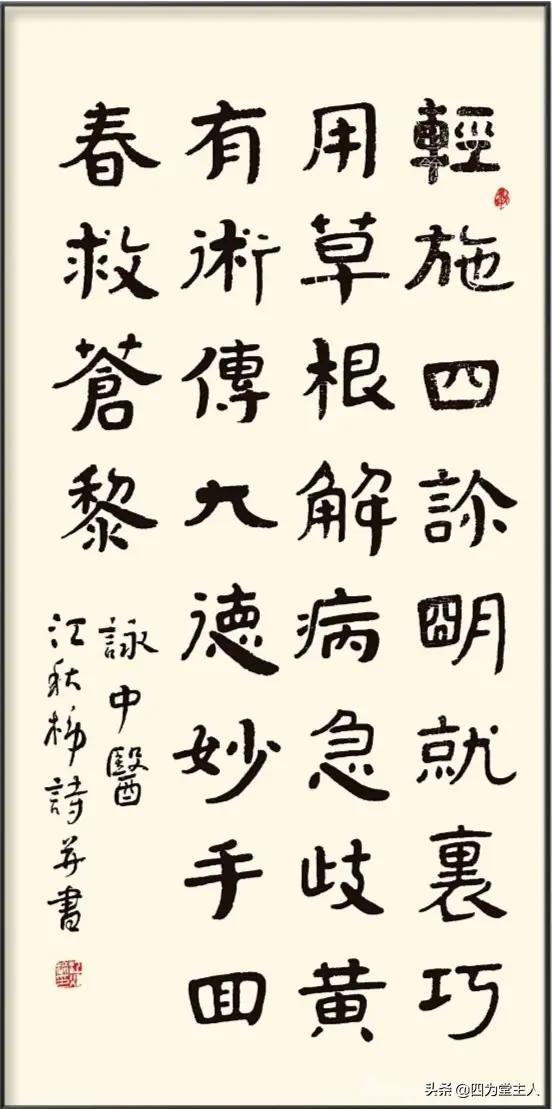 輕施四診朙就裏巧
用草根解病急歧黃
有術傳大德妙手回
春救蒼黎
詠中醫
江秋詩并書
头条 @四为堂主人